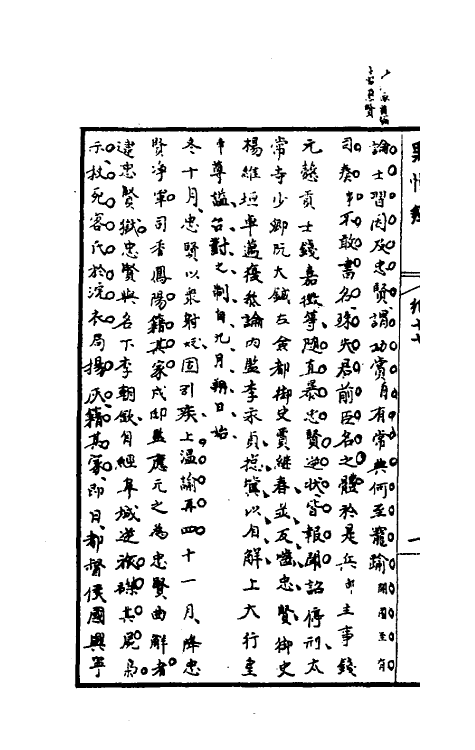 論士習因及忠賢謂功賞自有常典何至寵踰開國至有
司奏事不敢書名殊失君前臣名之體於是兵部主事錢
元慤貢士錢嘉徵等隨直暴忠賢逆狀皆報聞詔停刑太
常寺少卿阮大鋮左僉都御史賈繼春並反噬忠賢御史
楊維垣卑邁復叅論內監李永貞
以自解上大行皇
帝尊諡召對之制自九月朔日始
冬十月忠賢以衆射
固引疾上溫諭再四十一月降忠
賢淨軍司香鳳陽籍其家戍邸監應元之為忠賢曲解者
逮忠賢獄忠賢與名下李朝欽自經阜城逆旅磔其屍梟
示杖死客氏於浣衣局揚灰籍其家即日都督侯國興寧